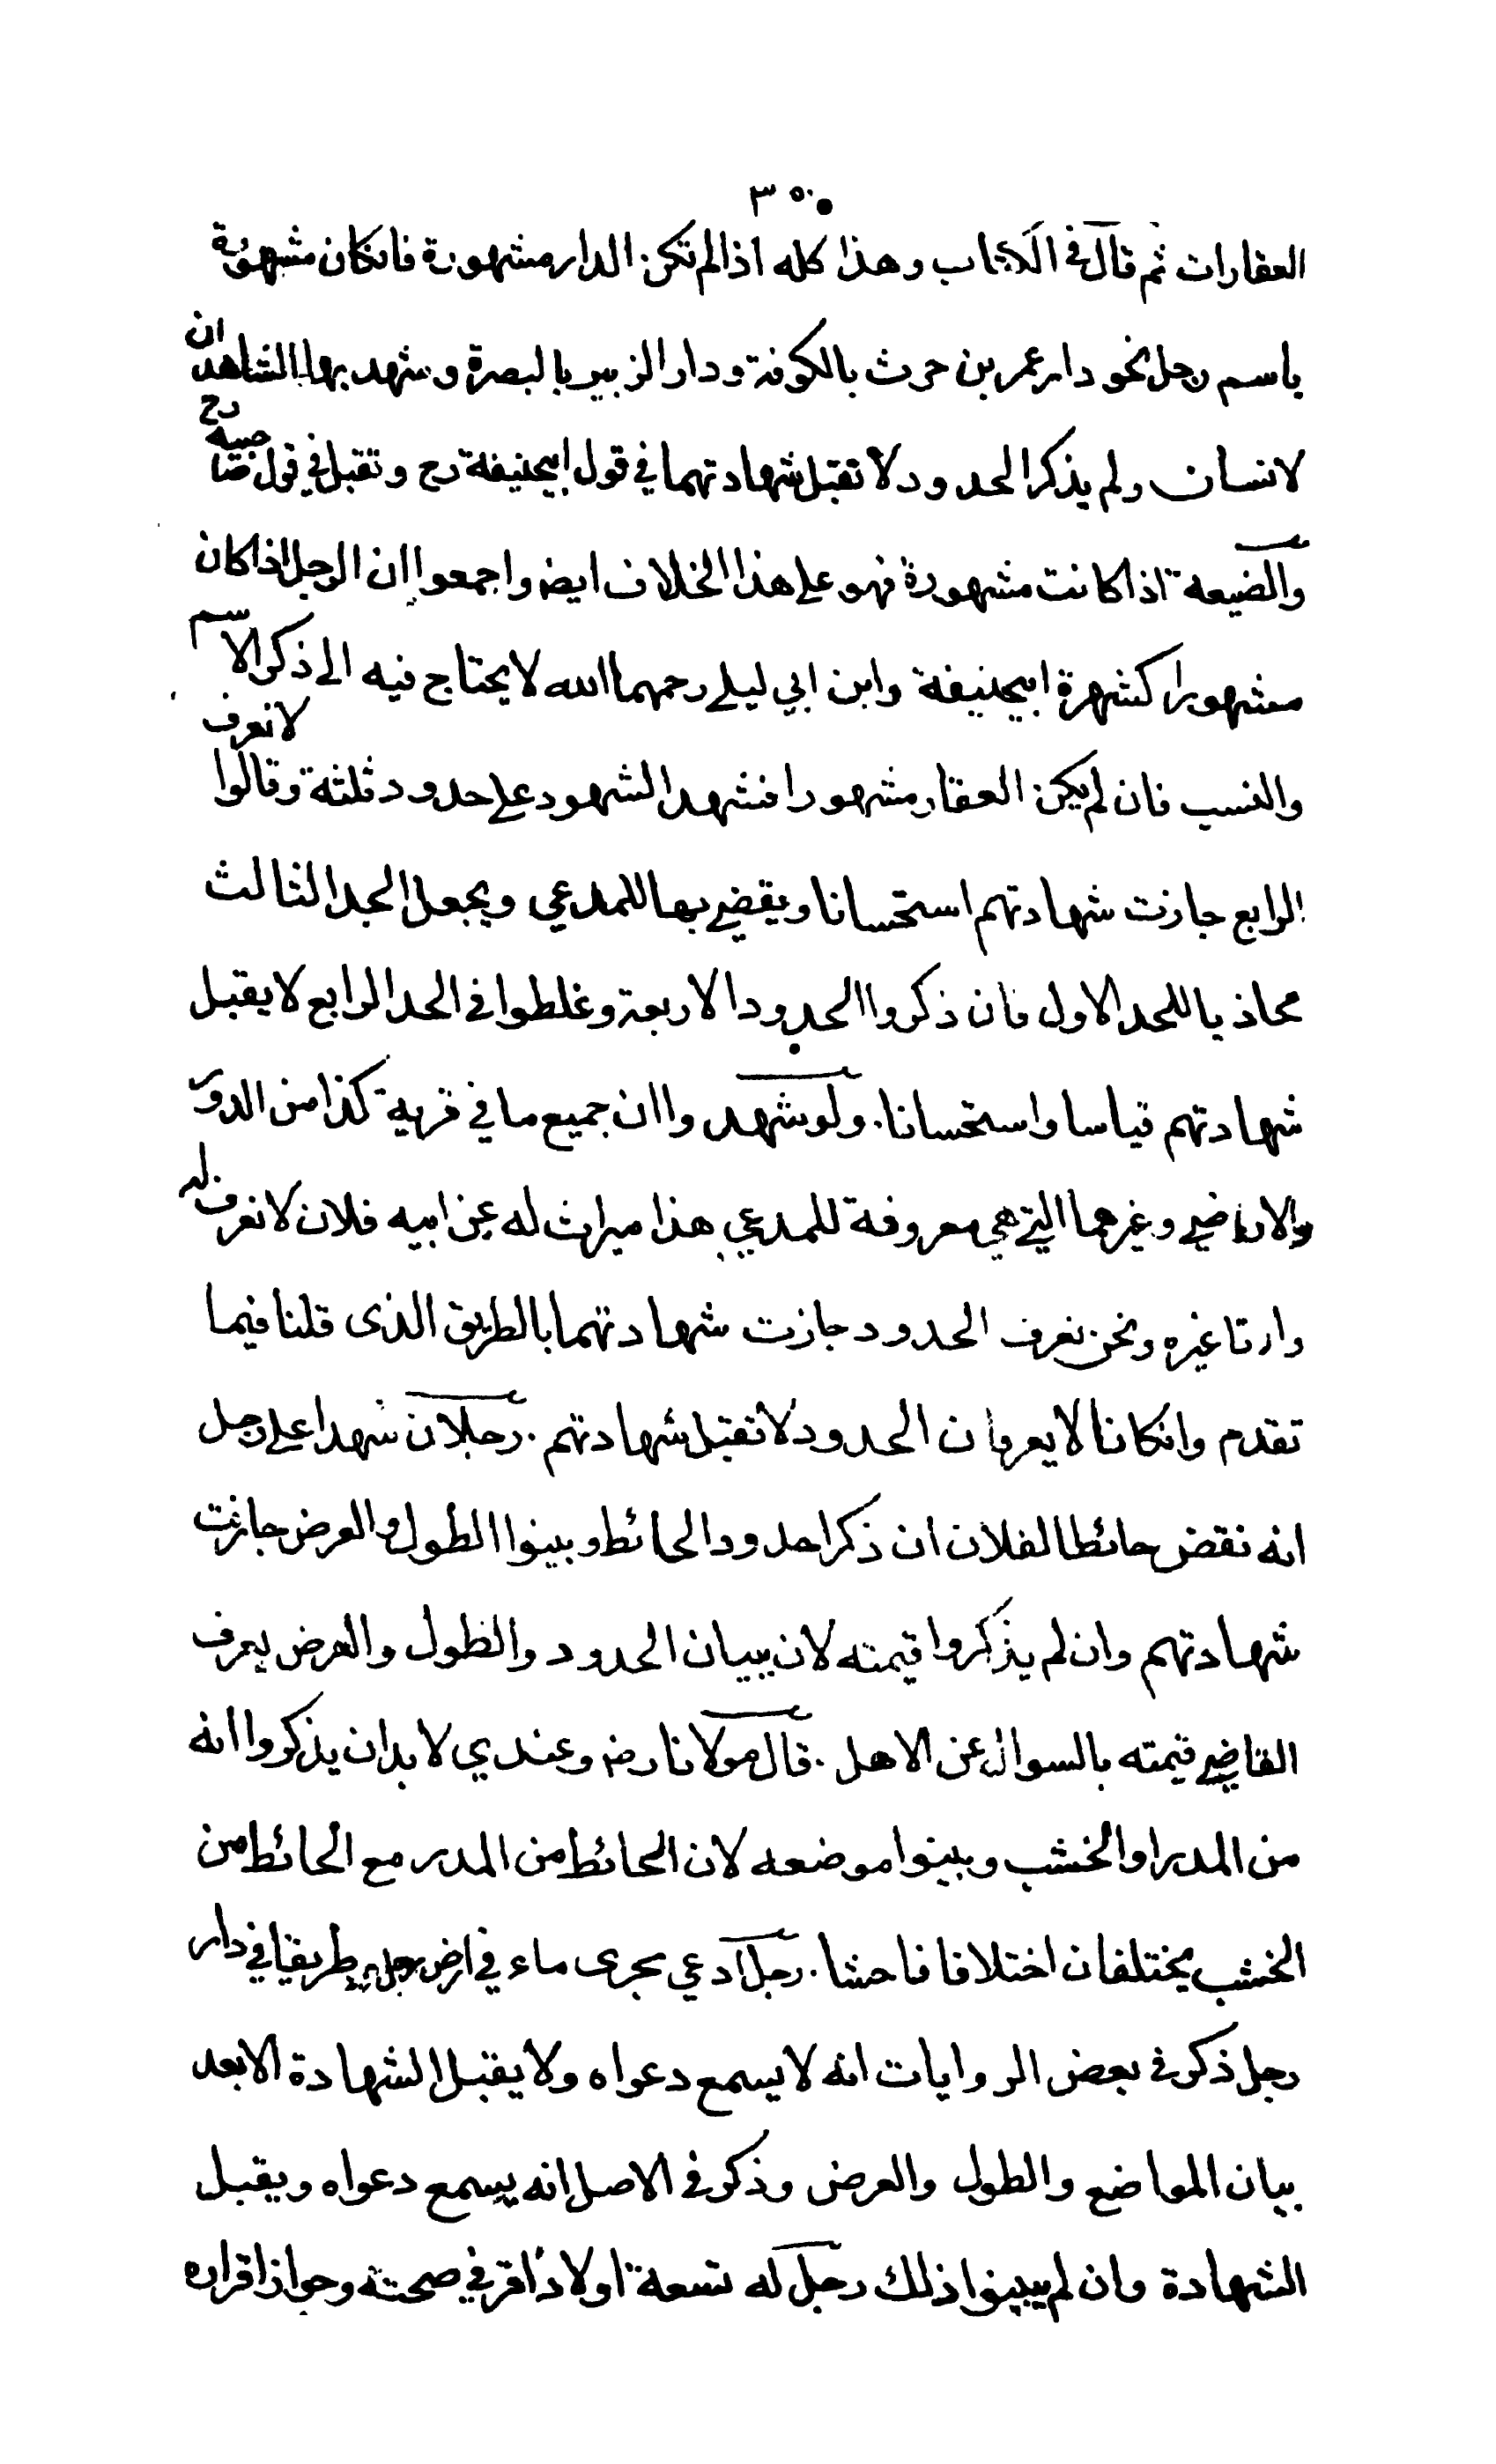 ٣٥٠
العقارات ثم قال في الكتاب وهذا كله اذا لم تكن الدار مشهورة فانكان مشهورة
باسم رجل نحو دار عمر بن حرث بالكوفة ودار الزبير بالبصرة وشهد بها الشاهدان
لانسان ولم يذكر الحدود لا تقبل شهادتهما في قول ابيحنيفة رح وتقبل في قول صاحبيه رح
والضيعة اذا كانت مشهورة فهو على هذا الخلاف ايضا واجمعوا ان الرجل اذا كان
مشهورا كشهرة ابيحنيفة وابن ابي ليلے رحمهما الله لا يحتاج فيه الى ذكر الاسم
والنسب فان لم يكن العقار مشهورا فشهد الشهود على حدود ثلثة وقالوا لا نعرف
الرابع جازت شهادتهم استحسانا ويقضے بها للمدعي ويجعل الحد الثالث
محاذيا للحد الاول فان ذكروا الحدود الاربعة وغلطوا في الحد الرابع لا يقبل
شهادتهم قياسا واستحسانا. ولو شهدوا ان جميع ما في قرية كذا من الدور
والاراضے وغيرهما التي هي معروفة للمدعي هذا ميراث له عن ابيه فلان لا نعرف له
وارثا غيره ونحن نعرف الحدود جازت شهادتهما بالطريق الذى قلنا فيما
تقدم وانكانا لا يعرفان الحدود لا تقبل شهادتهم. رجلان شهدا على رجل
انه نقض حائطا لفلان ان ذكرا حدود الحائط وبينوا الطول والعرض جازت
شهادتهم وان لم يذكروا قيمته لان ببيان الحدود والطول والعرض يعرف
القاضے قيمته بالسوال عن الاهل. قال مولانا رض وعندي لا بد ان يذكروا انه
من المدر او الخشب وبينوا موضعه لان الحائط من المدر مع الحائط من
الخشب يختلفان اختلافا فاحشا. رجل ادعي مجرى ماء في ارض رجل طريقا في دار
رجل ذكر في بعض الروايات انه لا يسمع دعواه ولا يقبل الشهادة الا بعد
بيان المواضع والطول والعرض وذكر في الاصل انه يسمع دعواه ويقبل
الشهادة وان لم يبينوا ذلك رجل له تسعة اولاد اقر في صحته وجواز اقراره